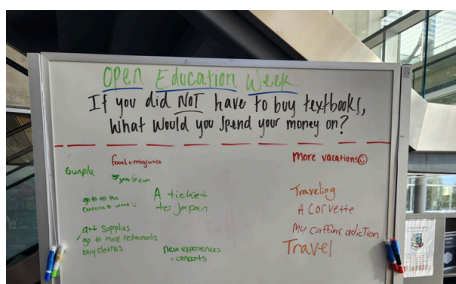 Open Education Week
If you did NOT have to buy textbooks,
what would you spend your money on?
Gunpla
food + magnums
go to all the
concerts I want
A ticket
to Japan
art supplies
go to more restaurants
buy clothes
New experiences
- concerts
More vacations
Traveling
A Corvette
My caffine adiction
Travel